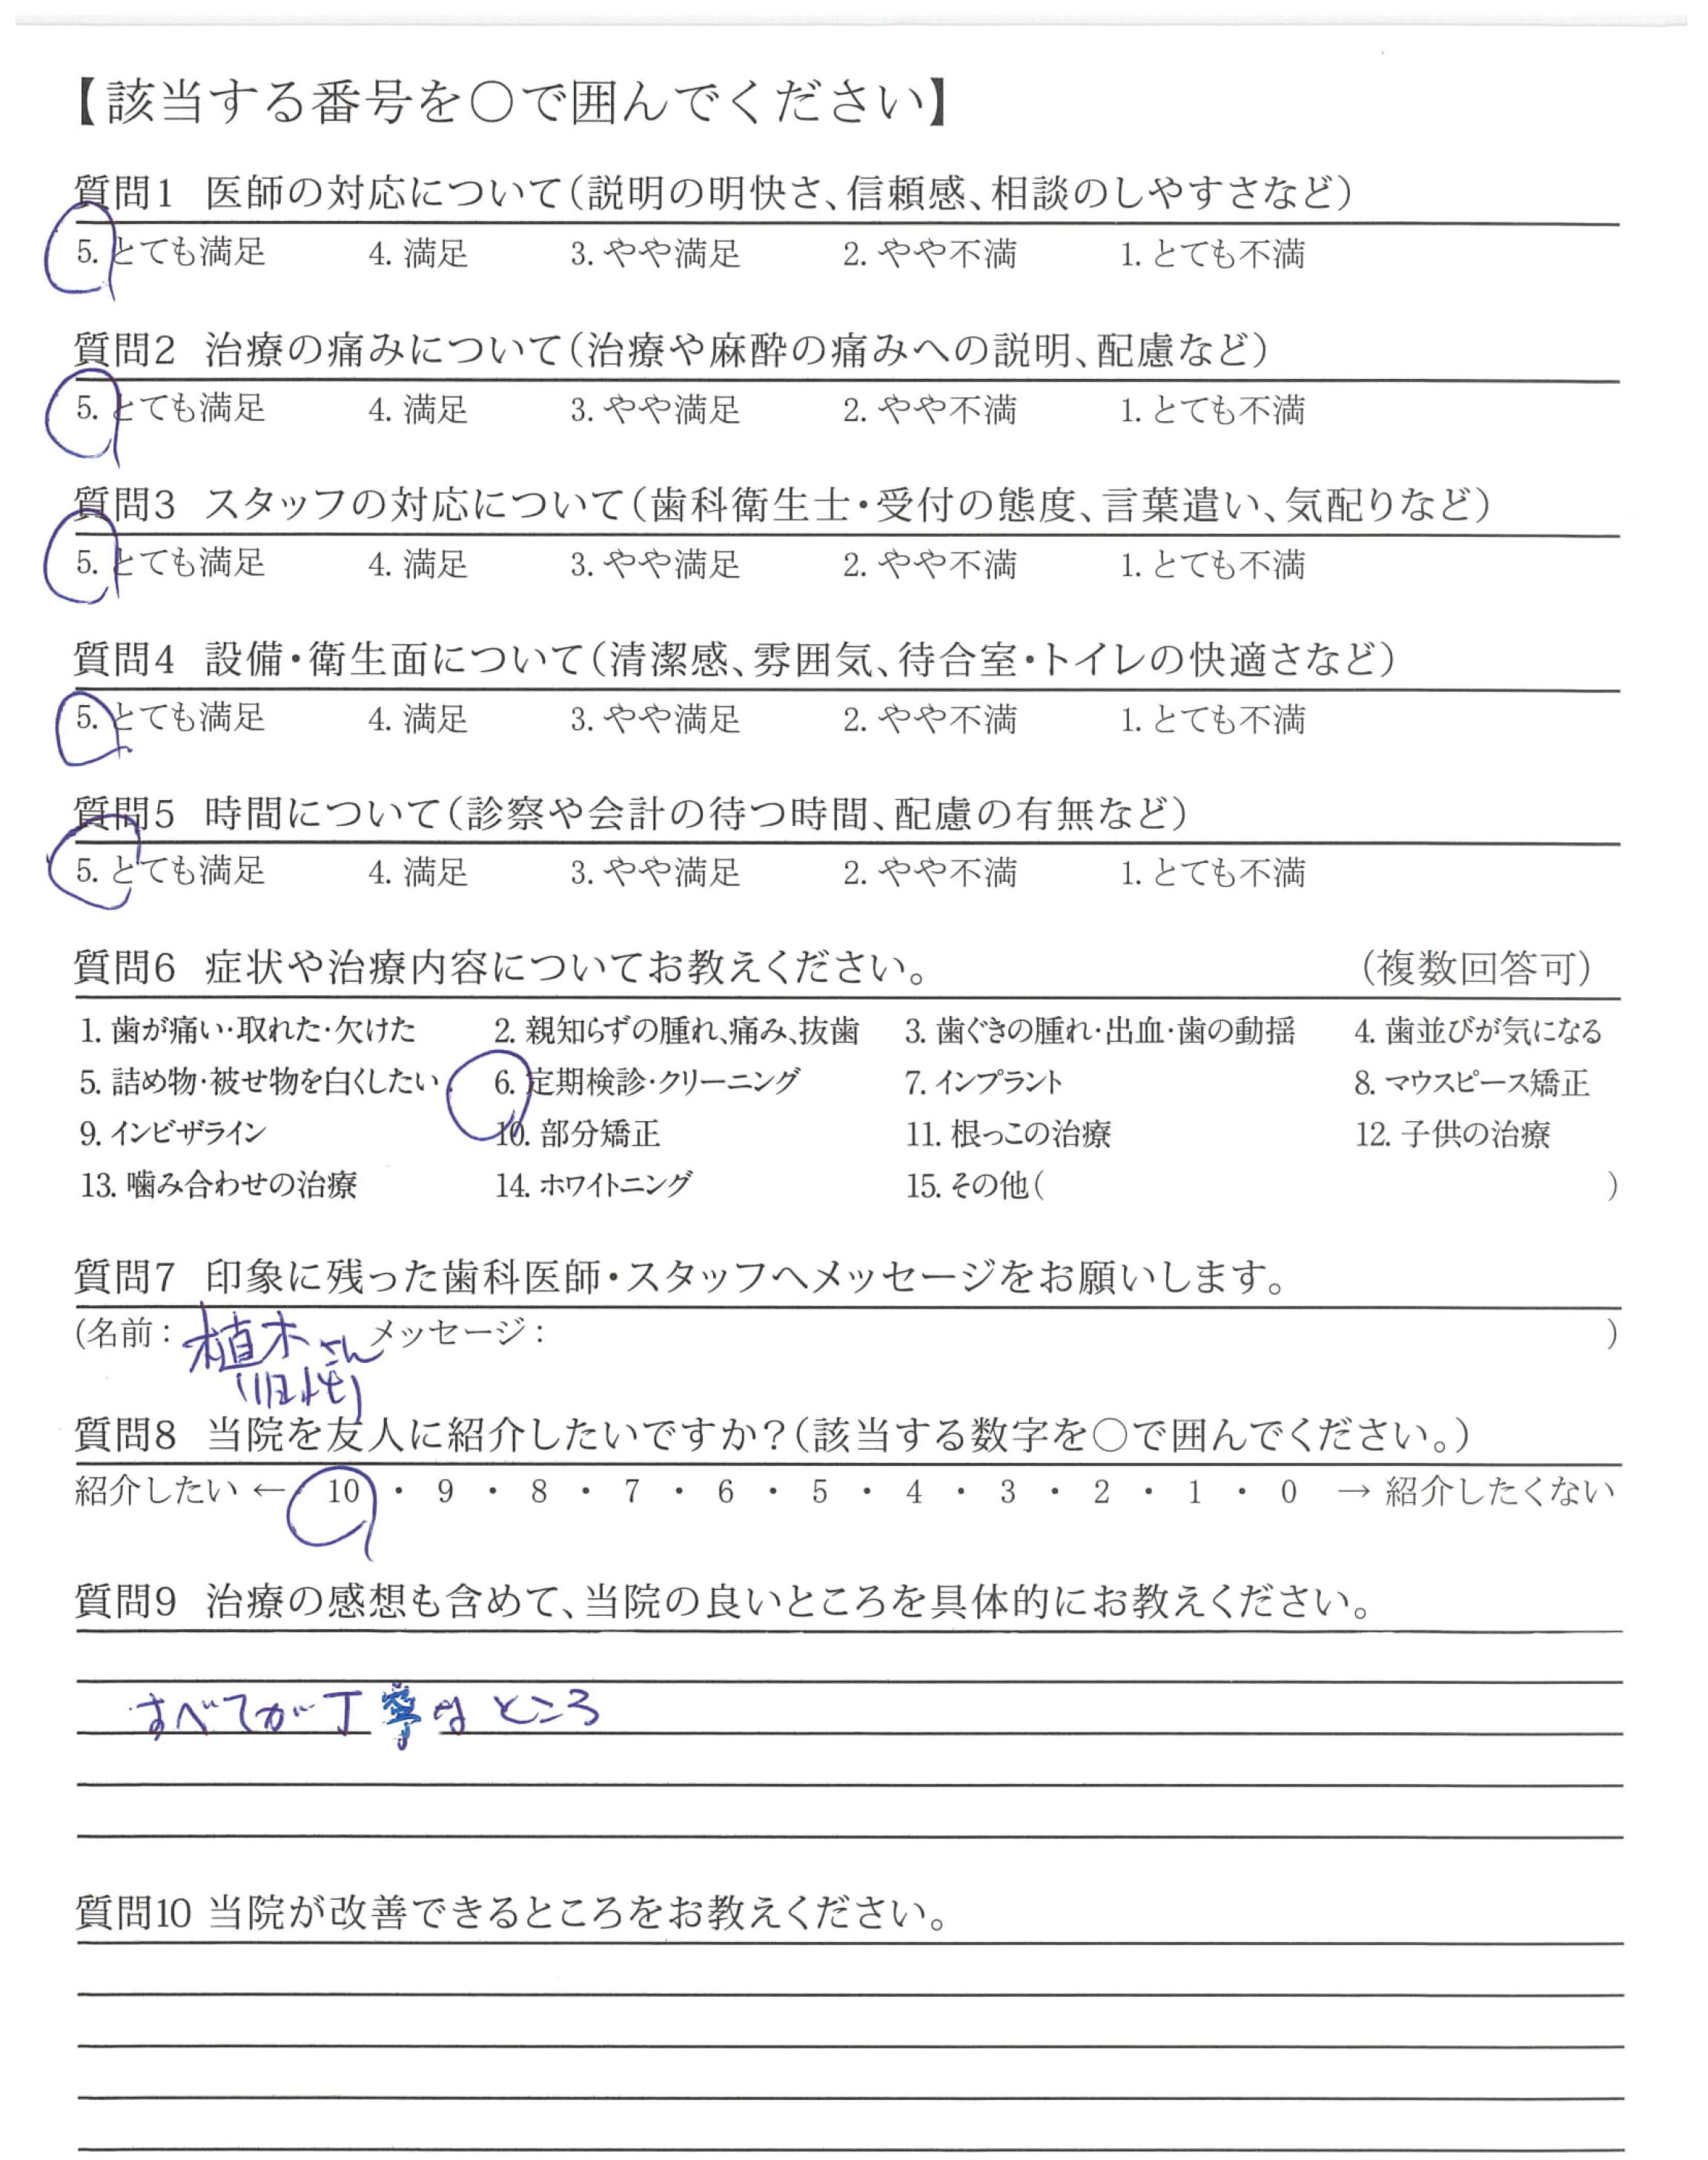 【該当する番号を〇で囲んでください】
質問1 医師の対応について(説明の明快さ、信頼感、相談のしやすさなど)
5. とても満足 4. 満足 3. やや満足 2. やや不満 1. とても不満
質問2 治療の痛みについて(治療や麻酔の痛みへの説明、配慮など)
5. とても満足 4. 満足 3. やや満足 2. やや不満 1. とても不満
質問3 スタッフの対応について(歯科衛生士・受付の態度、言葉遣い、気配りなど)
5. とても満足 4. 満足 3. やや満足 2. やや不満 1. とても不満
質問4 設備・衛生面について(清潔感、雰囲気、待合室・トイレの快適さなど)
5. とても満足 4. 満足 3. やや満足 2. やや不満 1. とても不満
質問5 時間について(診察や会計の待つ時間、配慮の有無など)
5. とても満足 4. 満足 3. やや満足 2. やや不満 1. とても不満
質問6 症状や治療内容についてお教えください。 (複数回答可)
1. 歯が痛い・取れた・欠けた 2. 親知らずの腫れ、痛み、抜歯 3. 歯ぐきの腫れ・出血・歯の動揺 4. 歯並びが気になる
5. 詰め物・被せ物を白くしたい 6. 定期検診・クリーニング 7. インプラント 8. マウスピース矯正
9. インビザライン 10. 部分矯正 11. 根っこの治療 12. 子供の治療
13. 噛み合わせの治療 14. ホワイトニング 15. その他( )
質問7 印象に残った歯科医師・スタッフへメッセージをお願いします。
(名前: 植木さん メッセージ: )
(旧姓)
質問8 当院を友人に紹介したいですか?(該当する数字を〇で囲んでください。)
紹介したい ← 10 ・ 9 ・ 8 ・ 7 ・ 6 ・ 5 ・ 4 ・ 3 ・ 2 ・ 1 ・ 0 → 紹介したくない
質問9 治療の感想も含めて、当院の良いところを具体的にお教えください。
すべてが丁寧なところ
質問10 当院が改善できるところをお教えください。